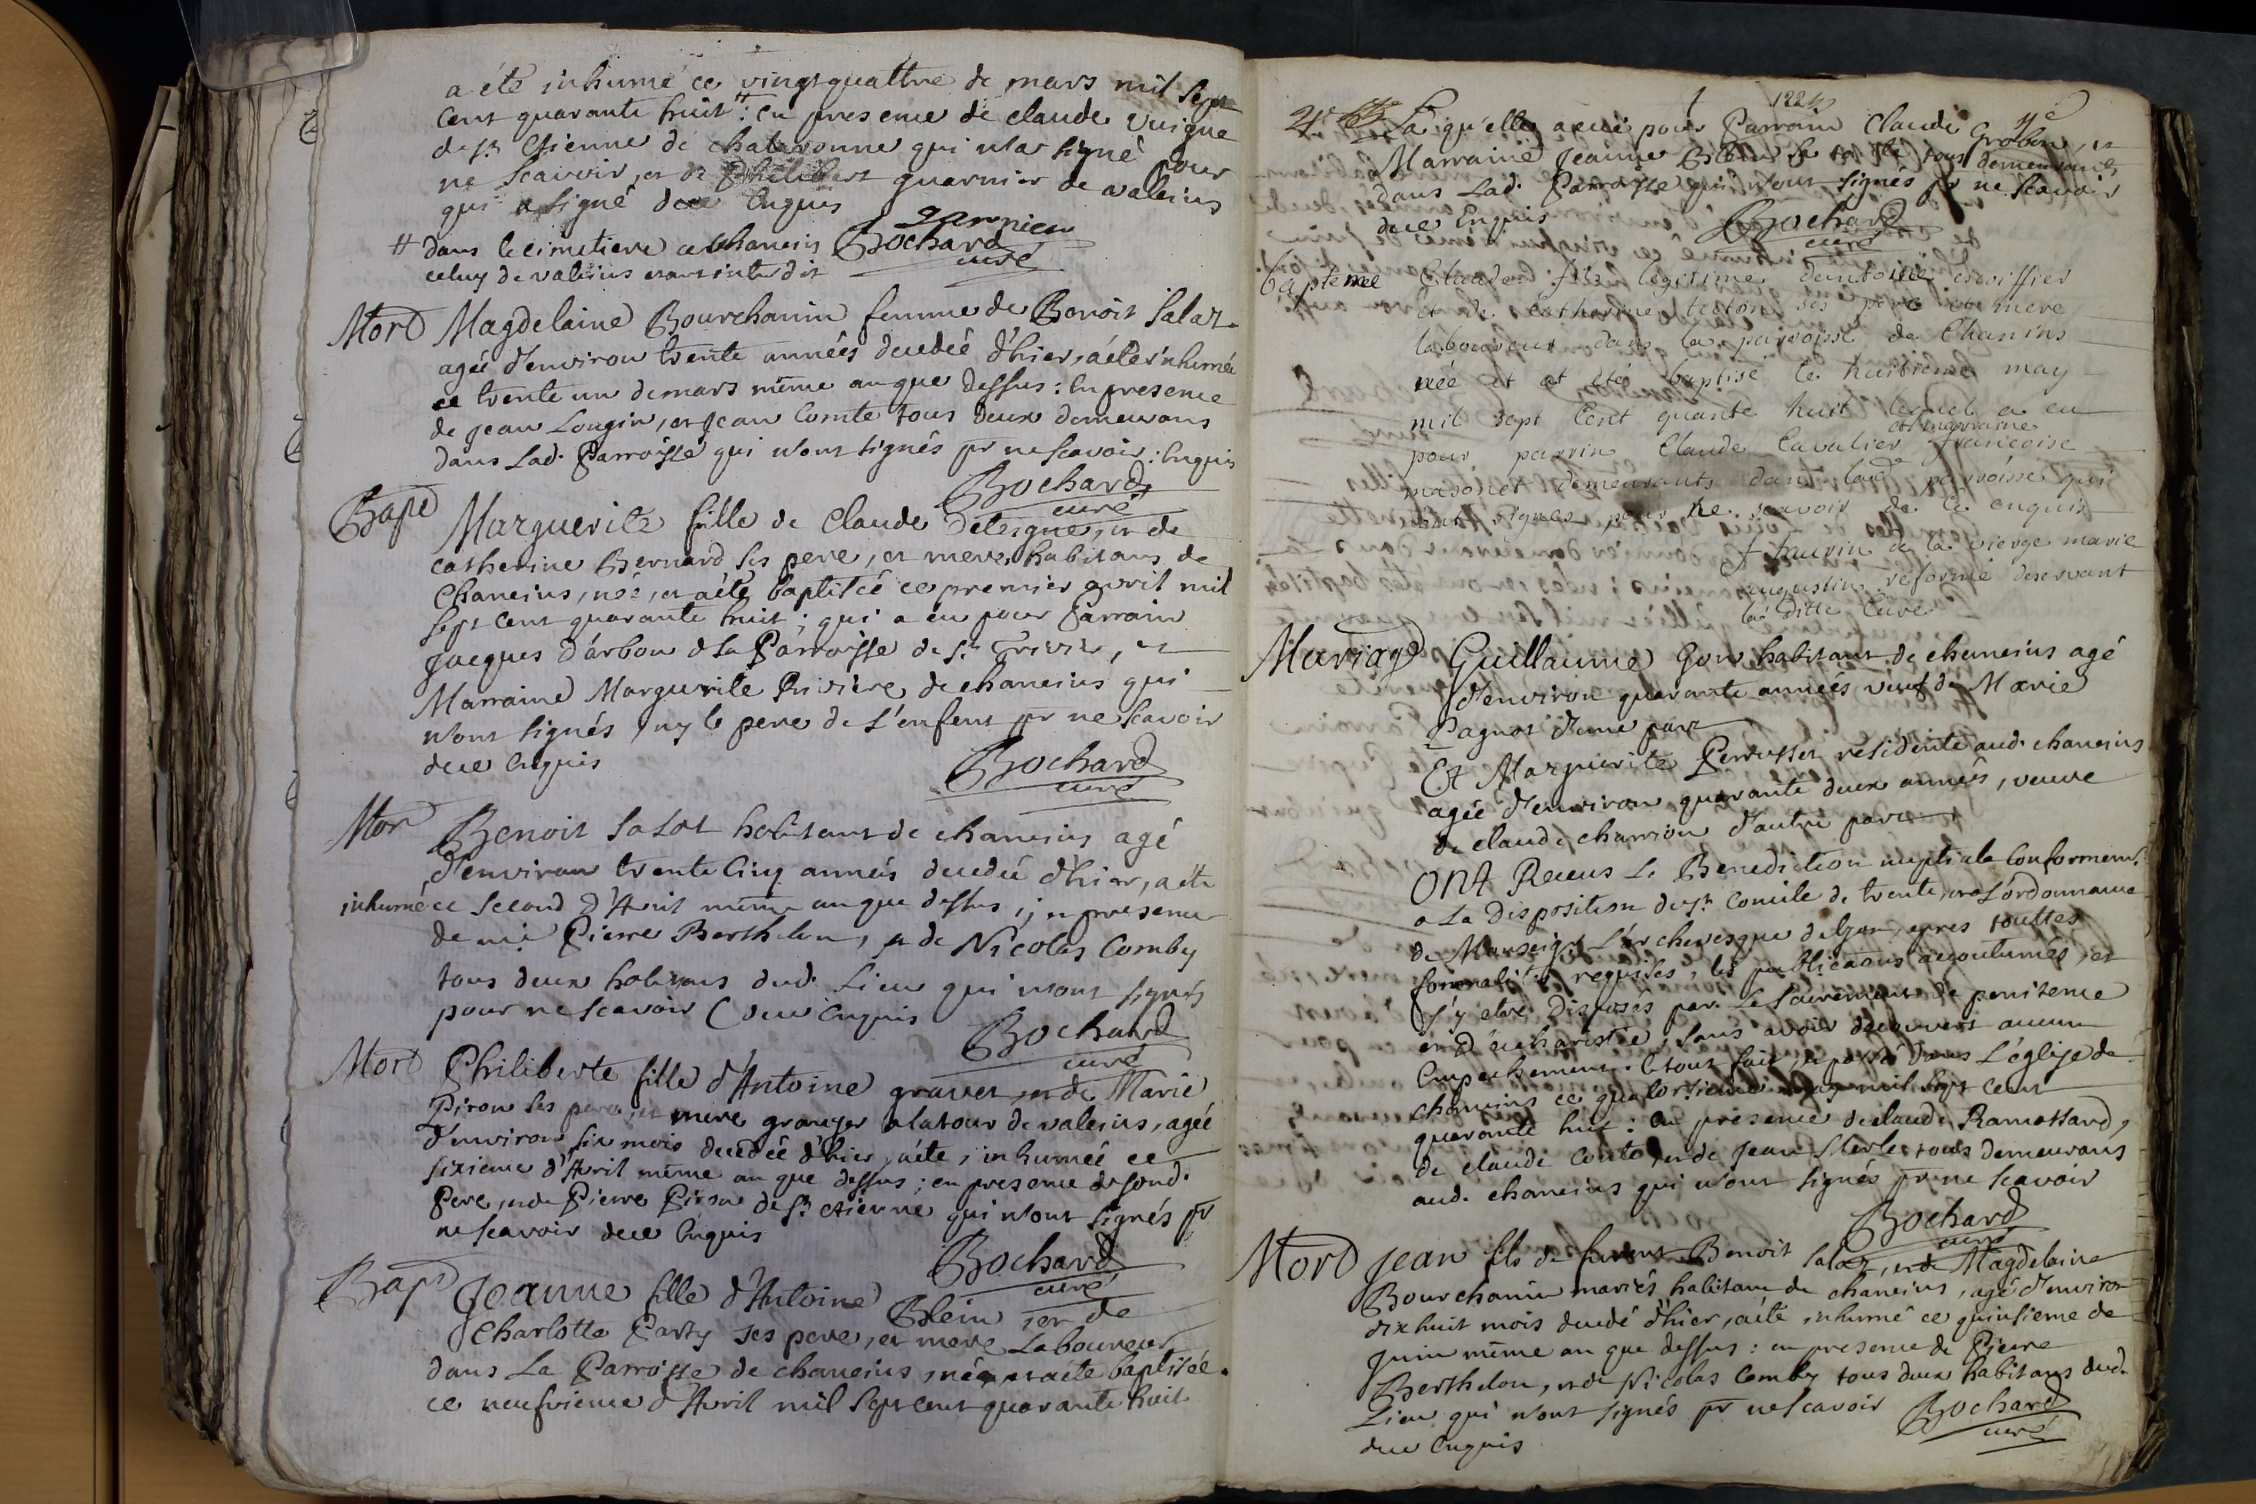 a été inhumé ce vingt quattre de mars mil sept
cent quarante huit # : En presence de claude
de st Etienne de chalaronne qui n'a signé pour
ne scavoir, et de Philibert guarnier de valeins
qui a signé de ce Enquis
garnier
# dans le cimetiere de chaneins Bochard
curé
celuy de valeins etant interdit
Mort Magdelaine Bourchanin femme de Benoit Salat
agée d'environ trente années decedée d'hier, a été inhumée
ce trente un de mars même an que dessus : En presence
de jean Longin, et jean Comte tous deux demeurans
dans Lad. Parroisse qui n'ont signés pr ne scavoir : Enquis
Bochard
curé
Bapt Marguerite fille de Claude Deteigne, et de
catherine Bernard ses pere, et mere, habitans de
Chaneins, née, et a été baptisée ce premier avril mil
sept cent quarante huit ; qui a eu pour Parrain
jacques d'arbon de la Parroisse de st Trivier, et
Marraine Marguerite Riviere de chaneins qui
n'ont signés, ny le pere de L'enfent pr ne scavoir
de ce Enquis
Bochard
curé
Mort Benoit Salat habitant de chaneins agé
d'environ trente cinq années decedé d'hier, a été
inhumé ce second d'Avril même an que dessus ; en presence
de Pierre Berthelon, et de Nicolas Comby
tous deux habitans dud. Lieu qui n'ont signés
pour ne scavoir de ce Enquis
Bochard
curé
Mort Philiberte fille d'Antoine gravet, et de Marie
Piron ses pere, et mere granger a la tour de valeins, agée
d'environ six mois decedée d'hier, a été, inhumée ce
sixieme d'Avril même an que dessus ; en presence de sond.
Pere, et de Pierre Piron de st etienne qui n'ont signés pr
ne scavoir de ce Enquis
Bochard
curé
Bapt Jeanne fille d'Antoine Blein, et de
Charlotte Carty ses pere, et mere Laboureur
dans La Parroisse de chaneins, née, et a été baptisée
ce neufvieme d'Avril mil sept cent quarante huit
La qu'elle a eu pour Parrain Claude Grobon, et
Marraine Jeanne tous demeurans
dans Lad. Parroisse qui n'ont signés pr ne scavoir
de ce Enquis
Bochard
curé
baptemee Claude fils legitime dantoine
et de catherine teton ses pere et mere
laboureur dans la parroisse de Chanins
née et at été baptisé le huitieme may
mil sept Cent quarante huit lequel a eu
pour parrin Claude Cavalier et marraine francoise
masonet demeurants dans lad parroisse qui
n'ont signés pour ne scavoir de ce enquis
f de la vierge marie
augustin reformé deservant
la ditte Cure
Mariage Guillaume Gon habitant de chaneins agé
d'environ quarante années veuf de Marie
Pagnot d'une part
Et Marguerite Perrusset residente aud. chaneins
agée d'environ quarante deux années, veuve
de claude charrion d'autre part
ONt Receus La Benediction nuptiale Conformemt.
a La Disposition du st Concile de trente, et a L'ordonnance
de Monseigr. L'archevesque de lyon, apres touttes
formalités requises, les publications acoutumées, et
s'y etre disposés par le sacrement de penitence
et d'eucharistie, sans avoir decouvert aucun
Empechement. Le tout fait, et passé dans L'église de
chaneins ce quatorsieme may mil sept cent
quarante huit : En presence de claude Ramossard,
de claude Conte, et de jean Merle tous demeurans
aud. chaneins qui n'ont signés pr ne scavoir
Bochard
curé
Mort jean fils de furent Benoit Salat, et de Magdelaine
Bourchanin mariés habitans de chaneins, agé d'environ
dix huit mois decedé d'hier, a été inhumé ce quinsieme de
juin même an que dessus : en presence de Pierre
Berthelon, et de Nicolas Comby tous deux habitans dud.
Lieu qui n'ont signés pr ne scavoir
de ce Enquis
Bochard
curé